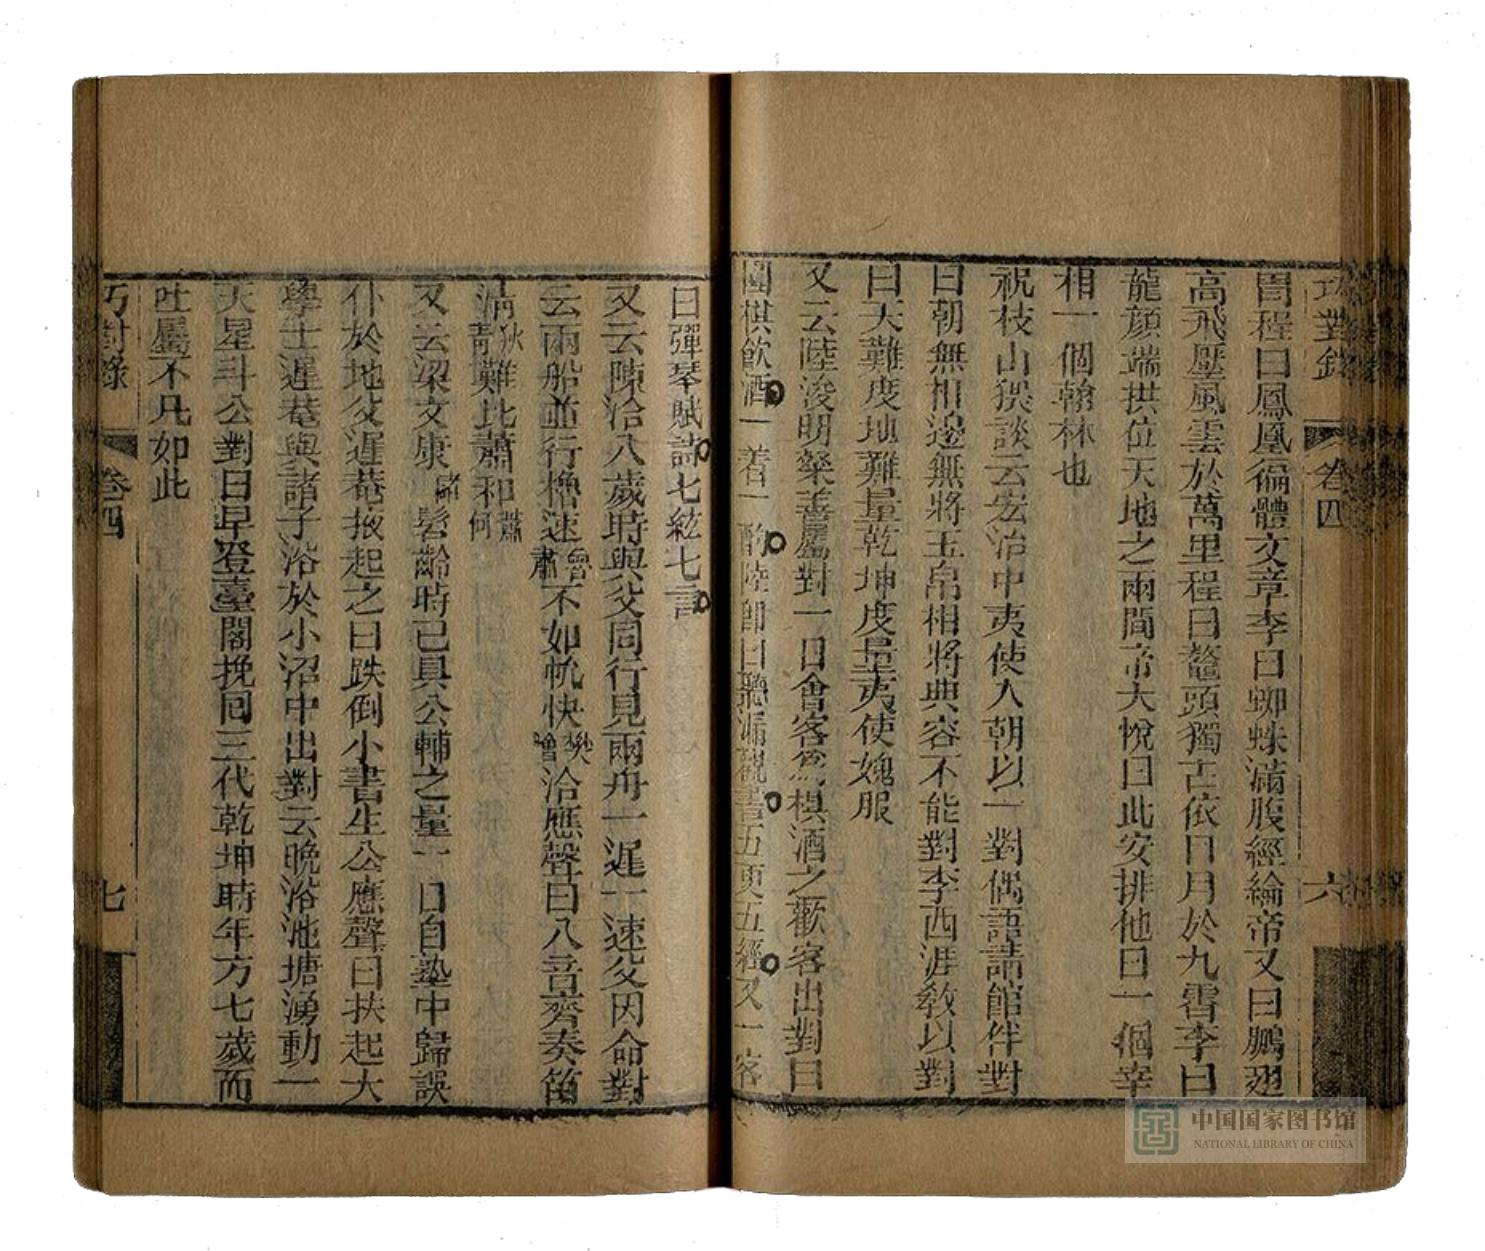 巧對錄 卷四 六
閣程曰鳳凰徧體文章李曰蜘蛛滿腹經綸帝又曰鵬翅
高飛壓風雲於萬里程曰鼇頭獨占依日月於九霄李曰
龍顏端拱位天地之兩間帝大悅曰此安排他日一個宰
相一個翰林也
祝枝山猥談云宏治中夷使入朝以一對偶語請館伴對
曰朝無相邊無將玉帛相將典客不能對李西涯教以對
曰天難度地難量乾坤度量夷使媿服
又云陸浚明粲善屬對一日會客為棋酒之歡客出對曰
圍棋飲酒一着一酌陸卽曰聽漏觀書五更五經又一客
曰彈琴賦詩七絃七言
又云陳洽八歲時與父同行見兩舟一遲一速父因命對
云兩船並行櫓速魯肅不如帆快樊噲洽應聲曰八音齊奏笛
清狄青難比蕭和蕭何
又云梁文康儲髫齡時已具公輔之量一日自塾中歸誤
仆於地父遲菴掖起之曰跌倒小書生公應聲曰扶起大
學士遲菴與諸子浴於小沼中出對云晚浴池塘湧動一
天星斗公對曰早登臺閣挽回三代乾坤時年方七歲而
吐屬不凡如此
巧對錄 卷四 七
中国国家图书馆
NATIONAL LIBRARY OF CHINA